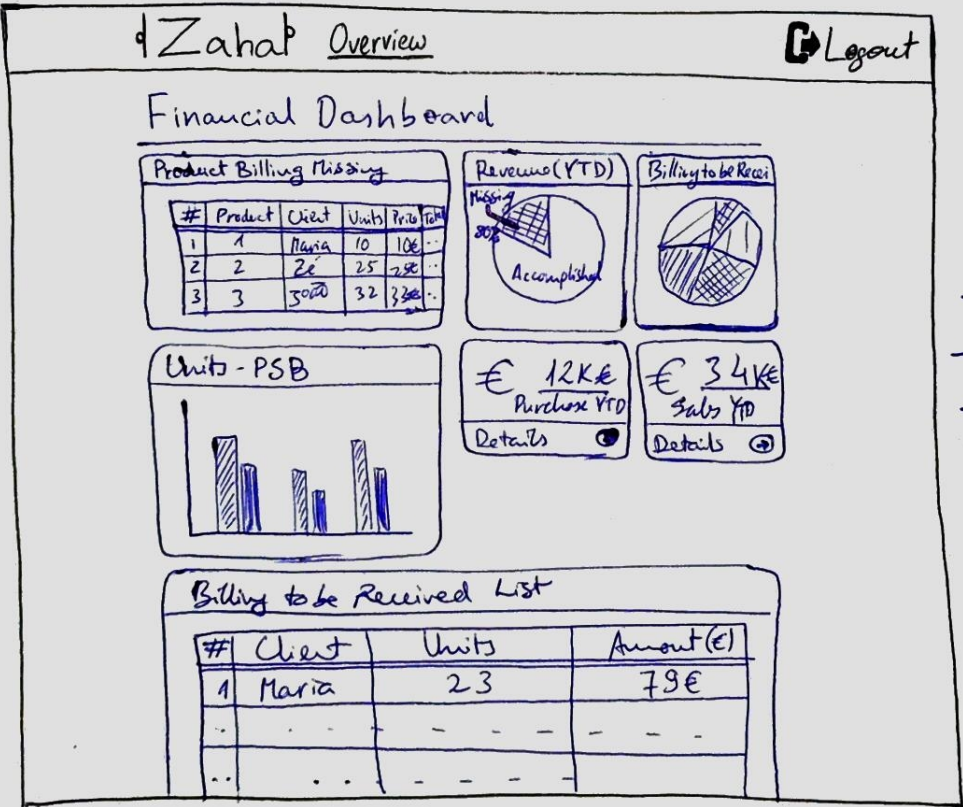 Zaha Overview Logout
Financial Dashboard
Product Billing Missing
# Product Client Units Price Total
1 1 Maria 10 10€ ..
2 2 Zé 25 25€ ..
3 3 32 33€ ..
Revenue (YTD)
Missing
Accomplished
Billing to be Recei
Units - PSB
€ 12K€
Purchase YTD
Details
€ 34K€
Sales YTD
Details
Billing to be Received List
# Client Units Amount (€)
1 Maria 23 79€